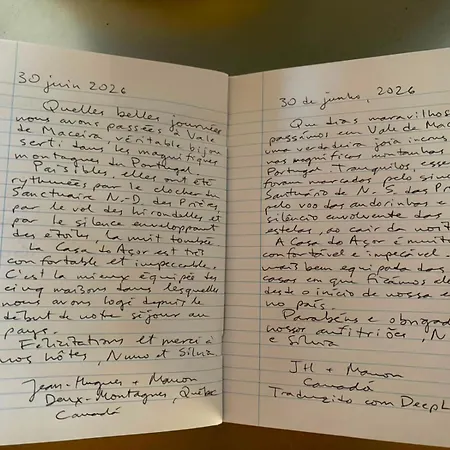 30 juin 2026
Quelles belles journées
nous avons passées à Vale
de Maceira, véritable bijou
serti dans les magnifiques
montagnes du Portugal.
Paisibles, elles ont été
rythmées par le clocher du
Sanctuaire N.-D. des Prières,
par le vol des hirondelles et
par le silence enveloppant
des étoiles, la nuit tombée.
La Casa do Açor est très
confortable et impeccable.
C'est la mieux équipée des
cinq maisons dans lesquelles
nous avons logé depuis le
début de notre séjour au
pays.
Félicitations et merci à
nos hôtes, Nuno et Silvia.
Jean-Hugues + Manon
Deux-Montagnes, Québec
Canada
30 de junho, 2026
Que dias maravilhos
passámos em Vale de Mac
uma verdadeira joia incrus
nas magníficas montanhas
Portugal. Tranquilos, esse
foram marcados pelo sin
Santuário de N. S. das Pr
pelo voo das andorinhas e
silêncio envolvente das
estelas, ao cair da noit
A Casa do Açor é muit
confortável e impecável é
mais bem equipada das
casas em que ficámos de
desde o início de nossa e
no país.
Parabéns e obrigad
nossos anfitriões, N
e Silvia
JH + Manon
Canadá
Traduzido com DeepL